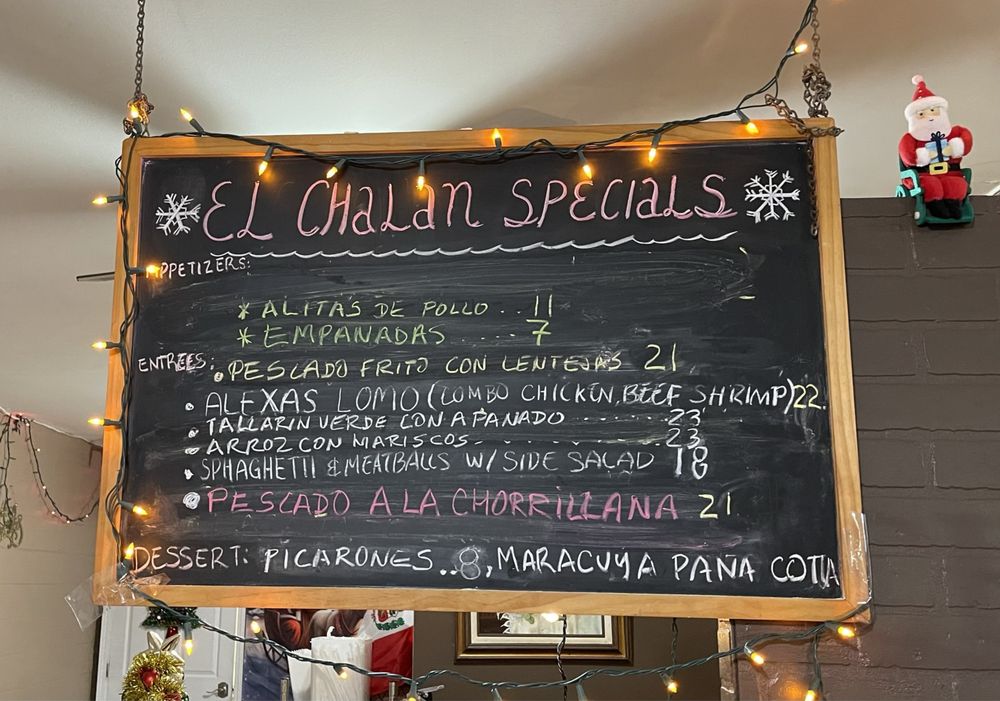 EL CHALAN SPECIALS
APPETIZERS:
* ALITAS DE POLLO .. 11
* EMPANADAS ..... 7
ENTREES:
• PESCADO FRITO CON LENTEJAS 21
• ALEXAS LOMO (COMBO CHICKEN, BEEF SHRIMP) 22.
• TALLARIN VERDE CON APANADO ...... 23
• ARROZ CON MARISCOS - . . - . . . . . 23
• SPHAGHETTI & MEATBALLS W/ SIDE SALAD 18
• PESCADO A LA CHORRILLANA 21
DESSERT: PICARONES..8, MARACUYA PAÑA COTTA